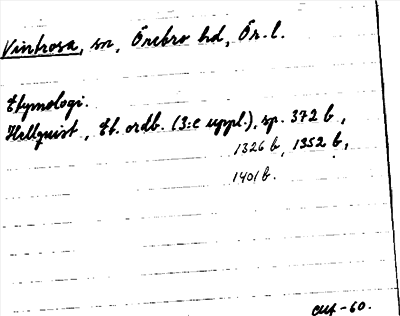 Vintrosa, sn, Örebro hd, Ör. l.
Etymologi.
Hellquist, Et. ordb. (3:e uppl.), sp. 372 b,
1326 b, 1352 b,
1401 b.